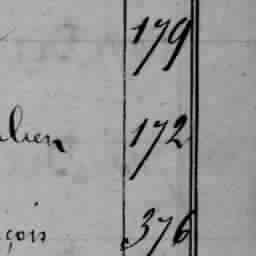 179
lien 172
çois 376